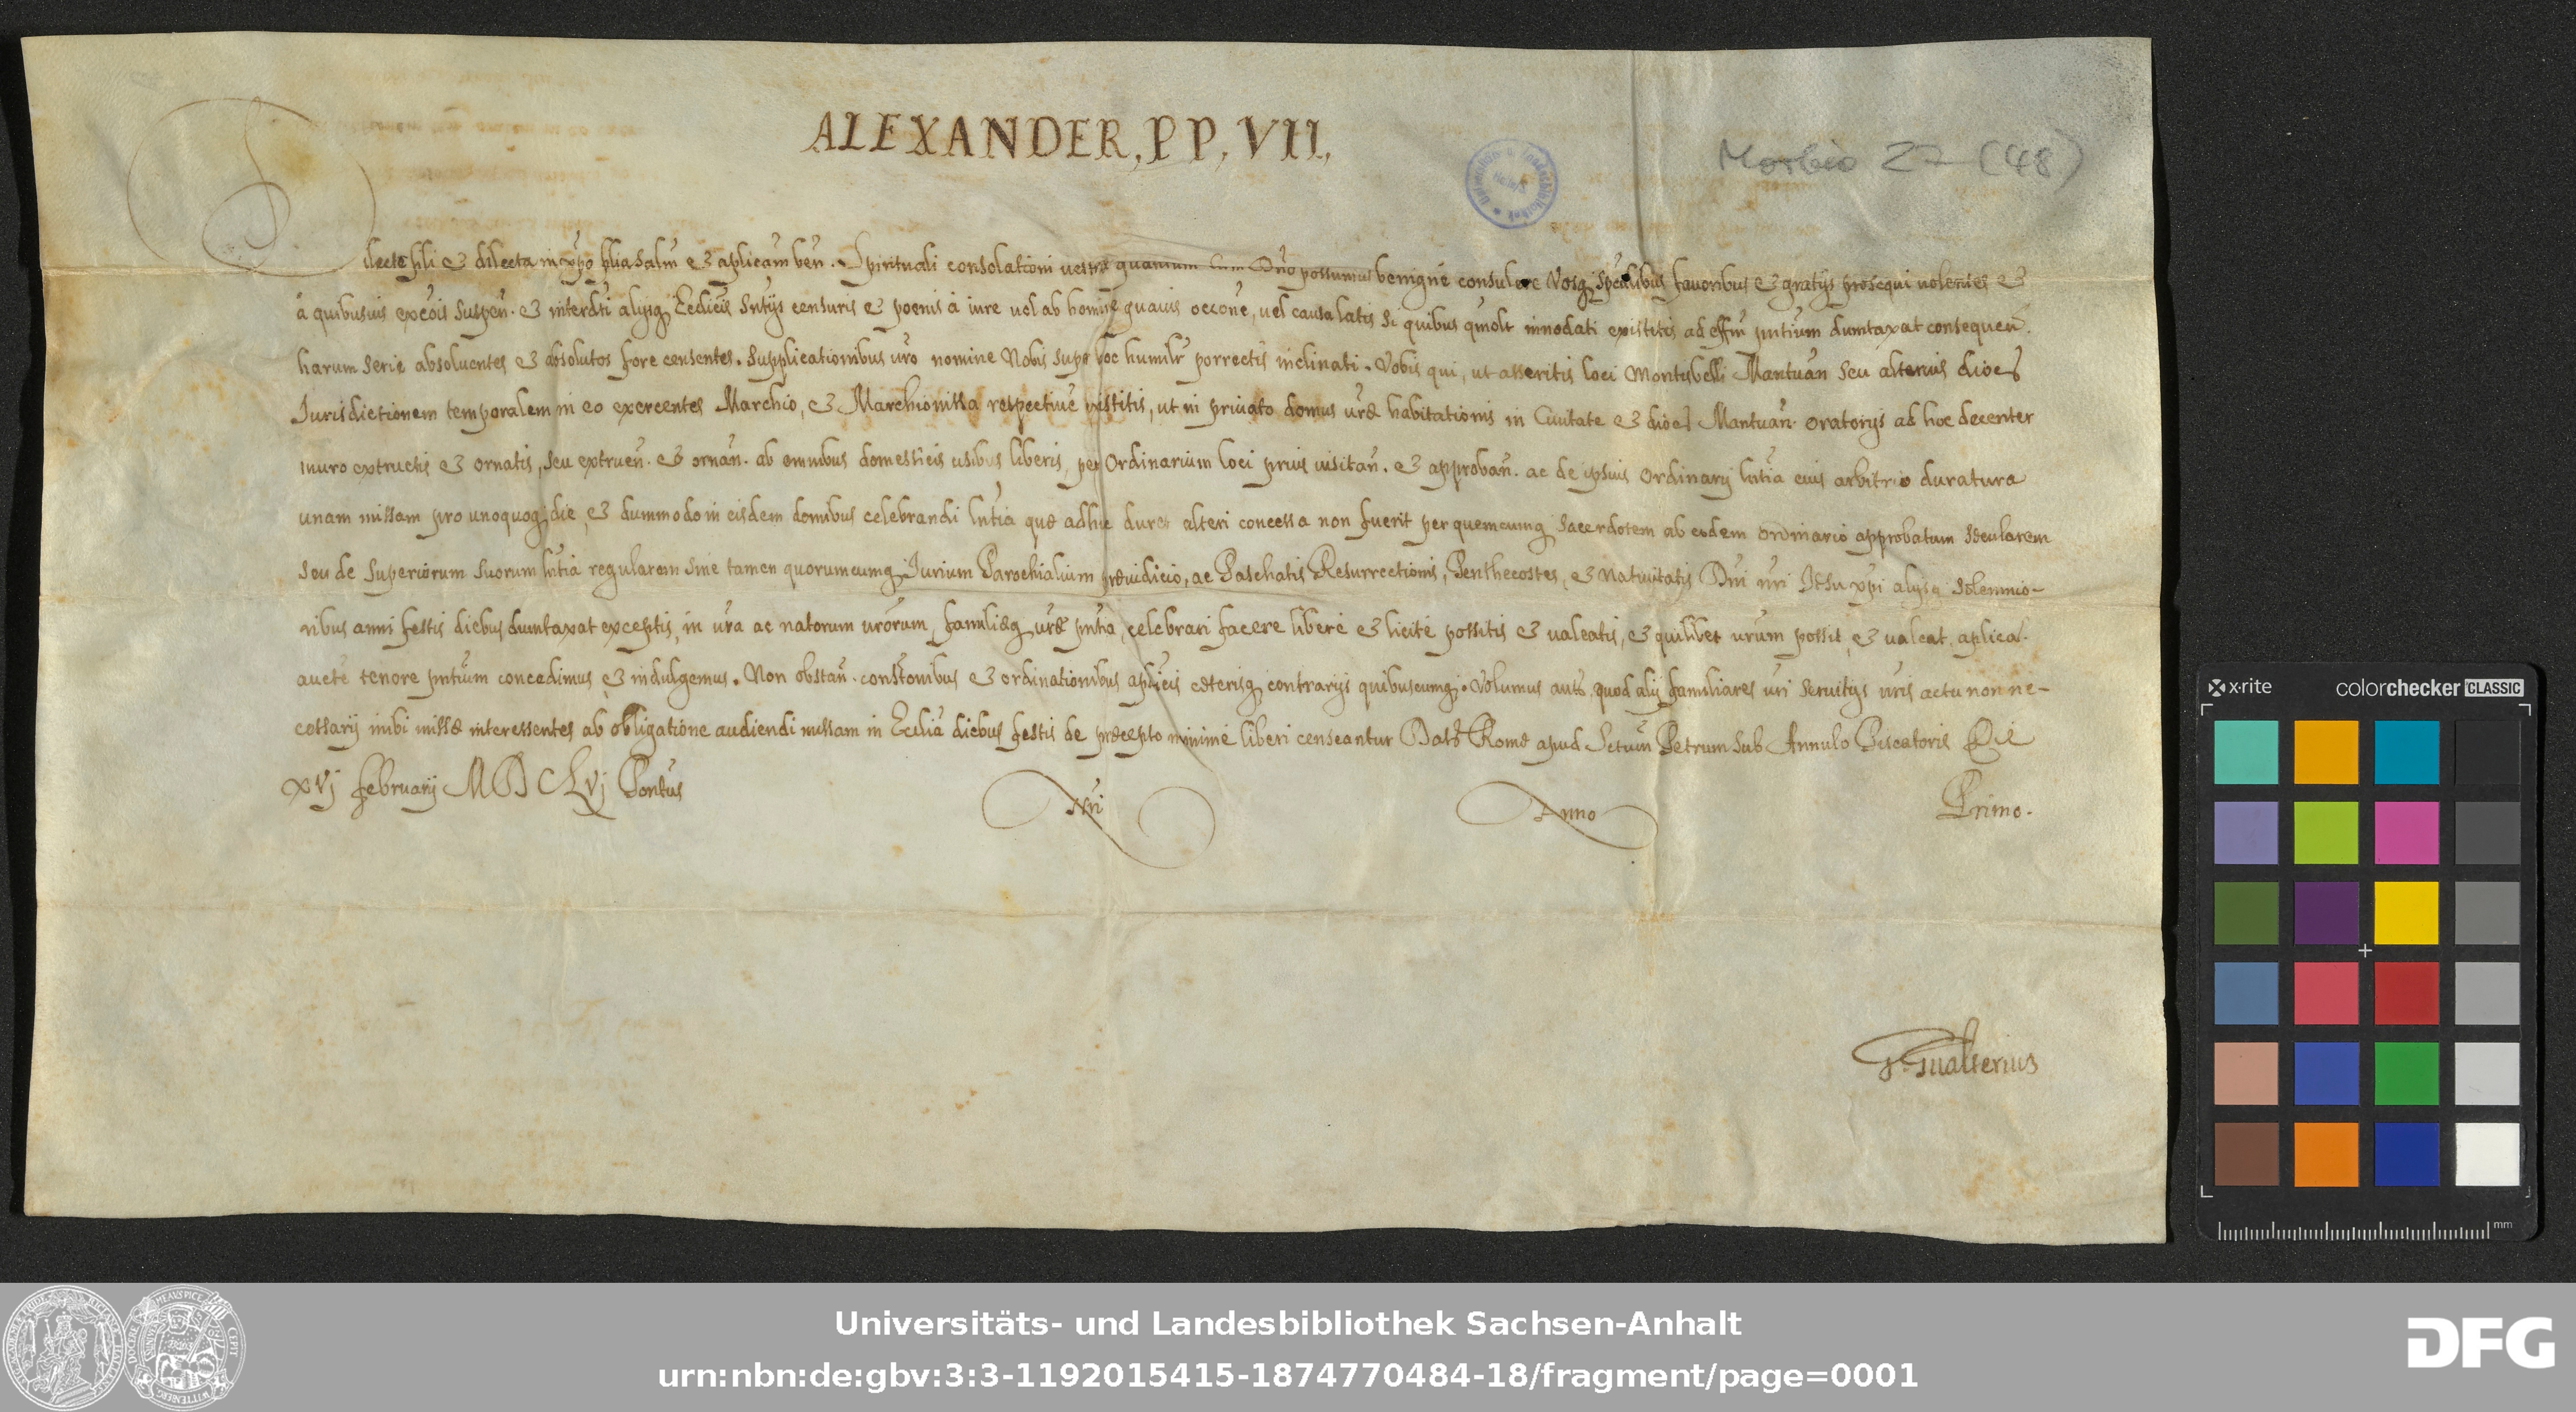 ALEXANDER, PP, VII,
Morbio 27 (48)
Dilecte fili & dilecta in xpo filia salm̄ & aplicam̄ ben̄. Spirituali consolationi vestræ quantum cum Dn̄o possumus benigné consulere Vosq̨ spēalibus favoribus & gratijs prosequi volentes &
à quibusuis excōis suspen̄. & interd̄ti alijsq̨ Ecclicīs sn̄tijs censuris & poenis à iure vel ab homine quauis occōne, vel causa latis si quibus quōlt innodati existitis ad effm̄ pn̄tium dumtaxat consequen̄.
harum serie absoluentes & absolutos fore censentes. Supplicationibus vr̄o nomine Nobis super hoc humilr̄ porrectis inclinati. Vobis qui, ut asseritis loci Montisbelli Mantuan̄ seu alterius dioeš
Jurisdictionem temporalem in eo exercentes Marchio, & Marchionissa respectiué existitis, ut in priuato domus vr̄æ habitationis in Ciuitate & dioeš Mantuan̄. oratorijs ad hoc decenter
muro extructis & ornatis, seu extruen̄. & ornan̄. ab omnibus domesticis usibus liberis, per Ordinarium loci prius visitan̄. & approban̄. ac de ipsius Ordinarij ln̄tia eius arbitrio duratura
unam missam pro unoquoq̨ die, & dummodo in eisdem domibus celebrandi ln̄tia quæ adhuc duret alteri concessa non fuerit per quemcumq̨ sacerdotem ab eodem ordinario approbatum sæcularem
seu de superiorum suorum ln̄tia regularem sine tamen quorumcumq̨ Jurium Parochialium præiudicio, ac Paschatis Resurrectionis, Penthecostes, & Natiuitatis Dn̄i nr̄i Jesu xpi̅ alijsq̨ solemnio-
ribus anni festis diebus dumtaxat exceptis, in vr̄a ac natorum vr̄orum, familiæq̨ vr̄æ pn̄tia, celebrari facere liberé & licité possitis & valeatis, & quilibet vr̄um possit, & valeat, aplica.
aucte̅ tenore pn̄tium concedimus & indulgemus. Non obstan̄. constōnibus & ordinationibus aplicīs cæterisq̨ contrarijs quibuscumq̨. Volumus aut̄, quod alij familiares vr̄i seruitijs vr̄is actu non ne-
cessarij inibi missæ interessentes ab obligatione audiendi missam in Ecclīa diebus festis de præcepto minimé liberi censeantur Dat̄ Romæ apud Sctum̄ Petrum sub Annulo Piscatoris Die
xvj februarij MDCLvj Pontūs Nr̄i Anno Primo.
G. Gualterius
x·rite colorchecker CLASSIC
mm
Universitäts- und Landesbibliothek Sachsen-Anhalt
urn:nbn:de:gbv:3:3-1192015415-1874770484-18/fragment/page=0001
DFG